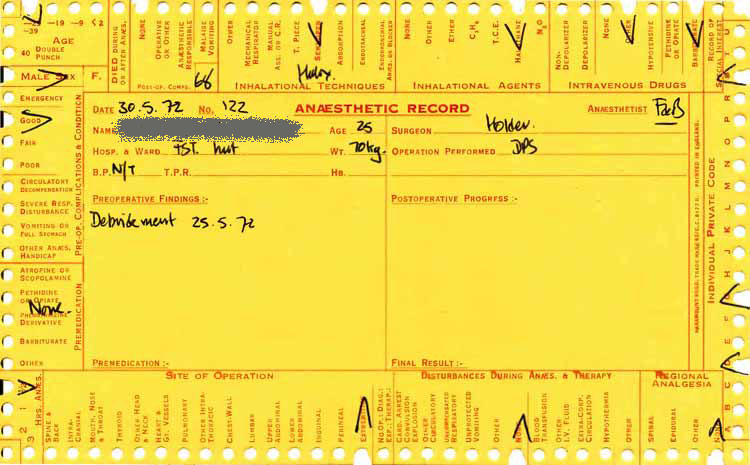 -39
-19
-9
<2
40
AGE
DOUBLE
PUNCH
MALE SEX
F.
DIED DURING
OR AFTER ANÆS.
NONE
OPERATIVE
OR OTHER
ANÆSTHETIC
RESPONSIBLE
MALAISE
VOMITING
OTHER
POST-OP. COMPS.
66
MECHANICAL
RESPIRATOR
MANUAL
ASS. OR C.R.
T. PIECE
ABSORPTION
ENDOTRACHEAL
ENDOBRONCHIAL
Halox.
INHALATIONAL TECHNIQUES
OTHER
ETHER
C₃H₆
T.C.E.
HALOTHANE
N₂O
INHALATIONAL AGENTS
NON-
DEPOLARIZER
DEPOLARIZER
NONE
OTHER
HYPOTENSIVE
PETHIDINE
OR OPIATE
BARBITURATE
INTRAVENOUS DRUGS
RECORD OF
SPECIAL INTEREST
EMERGENCY
GOOD
FAIR
POOR
CIRCULATORY
DECOMPENSATION
SEVERE RESP.
DISTURBANCE
VOMITING OR
FULL STOMACH
OTHER ANÆS.
HANDICAP
PRE-OP. COMPLICATIONS & CONDITION
ATROPINE OR
SCOPOLAMINE
PETHIDINE
OR OPIATE
None.
PHENOTHIAZINE
DERIVATIVE
BARBITURATE
OTHER
PREMEDICATION
DATE 30.5.72 No. 122
ANÆSTHETIC RECORD
ANÆSTHETIST
NAME
AGE 25
SURGEON Holder.
HOSP. & WARD TST. hut
WT. 70kg.
OPERATION PERFORMED DPS
B.P. N/T
T.P.R.
HB.
PREOPERATIVE FINDINGS:-
POSTOPERATIVE PROGRESS:-
Debridement 25.5.72
PREMEDICATION:-
FINAL RESULT:-
INDIVIDUAL PRIVATE CODE
PRINTED IN ENGLAND.
HRS. ANÆS.
3 2 1
SITE OF OPERATION
SPINE &
BACK
INTRA-
CRANIAL
MOUTH, NOSE
& THROAT
THYROID
OTHER HEAD
& NECK
HEART &
GT. VESSELS
PULMONARY
OTHER INTRA-
THORACIC
CHEST-WALL
LUMBAR
UPPER
ABDOMINAL
LOWER
ABDOMINAL
INGUINAL
PERINEAL
EXTREMITIES
NO OP.; DIAG.;
EXP.; THERAP.
DISTURBANCES DURING ANÆS. & THERAPY
CARD. ARREST
CONVULSION
EXPLOSION
OTHER
CIRCULATORY
UNCOMPENSATED
RESPIRATORY
UNPROTECTED
VOMITING
OTHER
NONE
BLOOD
TRANSFUSION
OTHER
I.V. FLUID
EXTRA-CORP.
CIRCULATION
HYPOTHERMIA
OTHER
REGIONAL
ANALGESIA
SPINAL
EPIDURAL
OTHER
NONE